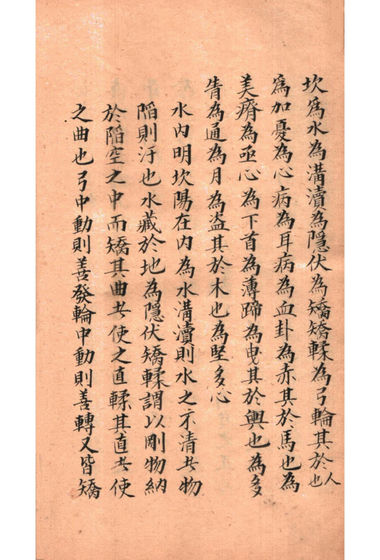 坎為水為溝瀆為隱伏為矯矯輮為弓輪其於人也
為加憂為心病為耳病為血卦為赤其於馬也為
美瘠為亟心為下首為薄蹄為曳其於輿也為多
眚為通為月為盜其於木也為堅多心
水內明坎陽在內為水溝瀆則水之不清其物
陷則汙也水藏於地為隱伏矯輮謂以剛物納
於陷空之中而矯其曲者使之直輮其直者使
之曲也弓中動則善發輪中動則善轉又皆矯